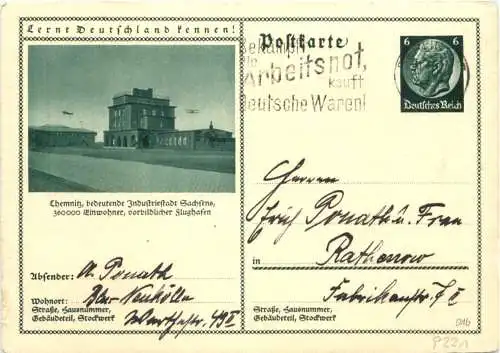 Lernt Deutschland kennen!
Postkarte
6 6
Deutsches Reich
Bekämpft
die
Arbeitsnot,
kauft
Deutsche Waren!
Chemnitz, bedeutende Industriestadt Sachsens,
360000 Einwohner, vorbildlicher Flughafen
Herren
Erich Ponath u. Frau
in Rathenow
Fabrikenstr. 7 II
Straße, Hausnummer,
Gebäudeteil, Stockwerk
Absender: A. Ponath
Wohnort: Bln Neukölln
Straße, Hausnummer,
Gebäudeteil, Stockwerk
Warthestr. 49 II
P221